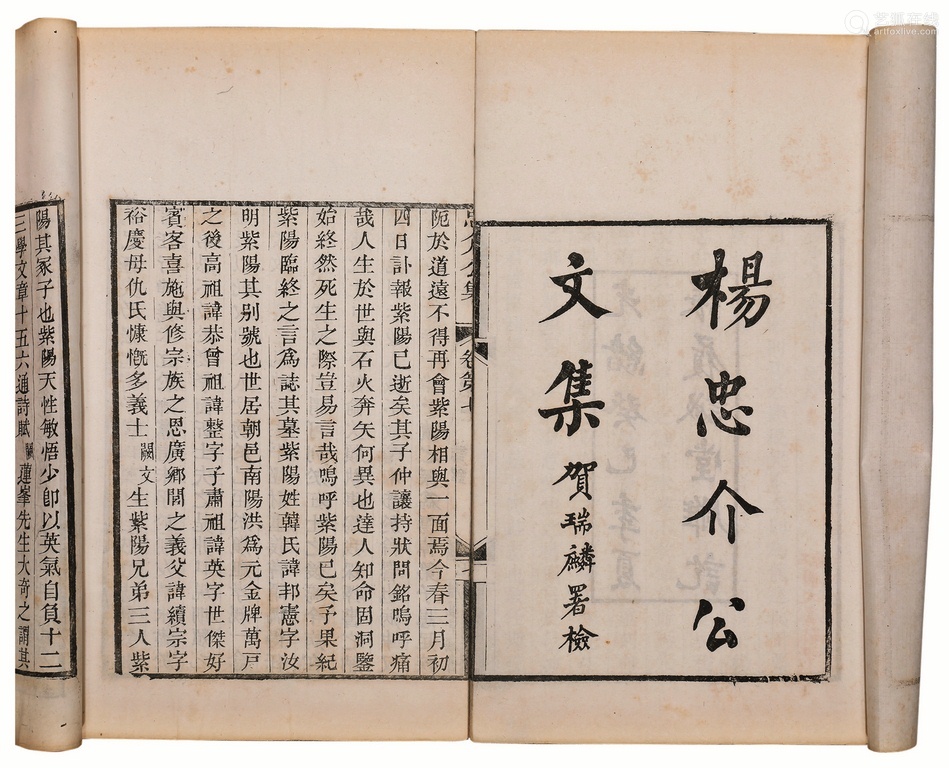 楊忠介公
文集
賀瑞麟署檢
忠介公集 卷第七
阨於道遠不得再會紫陽相與一面焉今春三月初
四日訃報紫陽已逝矣其子仲讓持狀問銘嗚呼痛
哉人生於世與石火奔矢何異也達人知命固洞鑒
始終然死生之際豈易言哉嗚呼紫陽已矣予果紀
紫陽臨終之言爲誌其墓紫陽姓韓氏諱邦憲字汝
明紫陽其別號也世居朝邑南陽洪爲元金牌萬戸
之後高祖諱恭曾祖諱整字子肅祖諱英字世傑好
賓客喜施與修宗族之思廣鄉閭之義父諱續宗字
裕慶母仇氏慷慨多義士闕文生紫陽兄弟三人紫
陽其冢子也紫陽天性敏悟少卽以英氣自負十二
三學文章十五六通詩賦闕蓮峯先生大奇之謂其
艺狐在线
artfoxlive.com